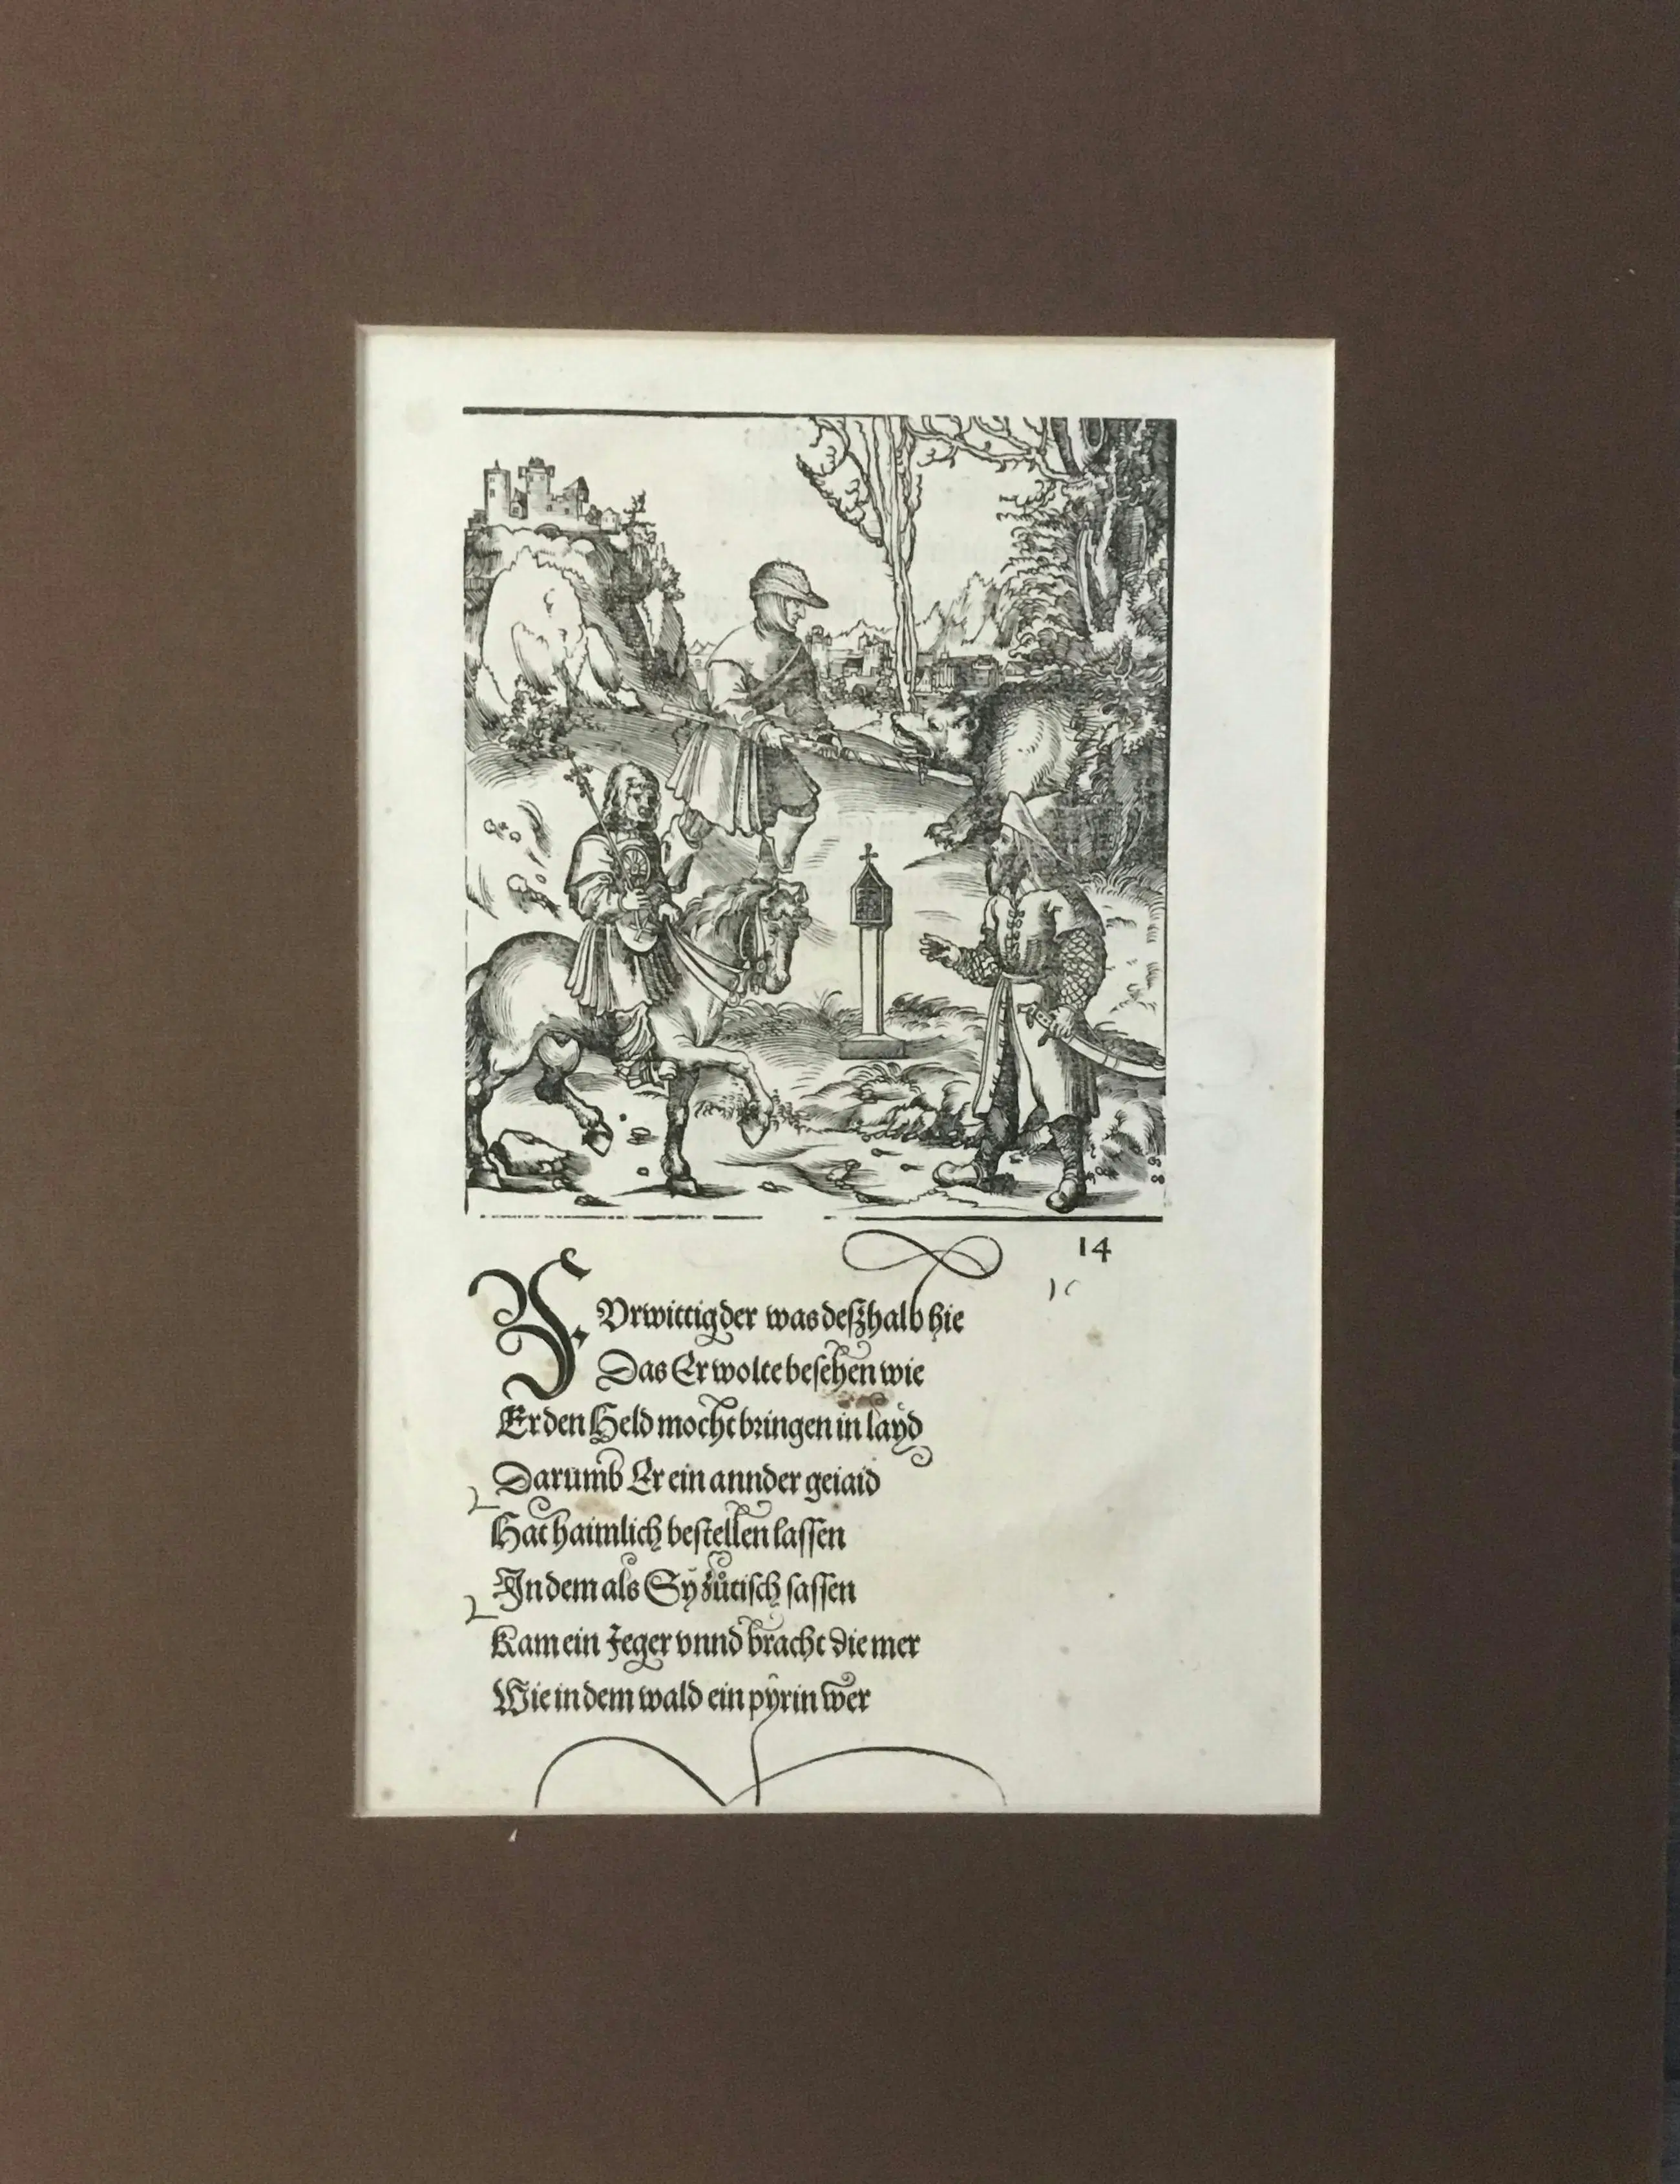 14
FVrwittig der was deßhalb hie
Das Er wolte besehen wie
Er den Held mocht bringen in layd
Darumb Er ein annder geiaid
Hat haimlich bestellen lassen
In dem als Sy zůtisch sassen
Kam ein Jeger vnnd bracht die mer
Wie in dem wald ein pyrin wer